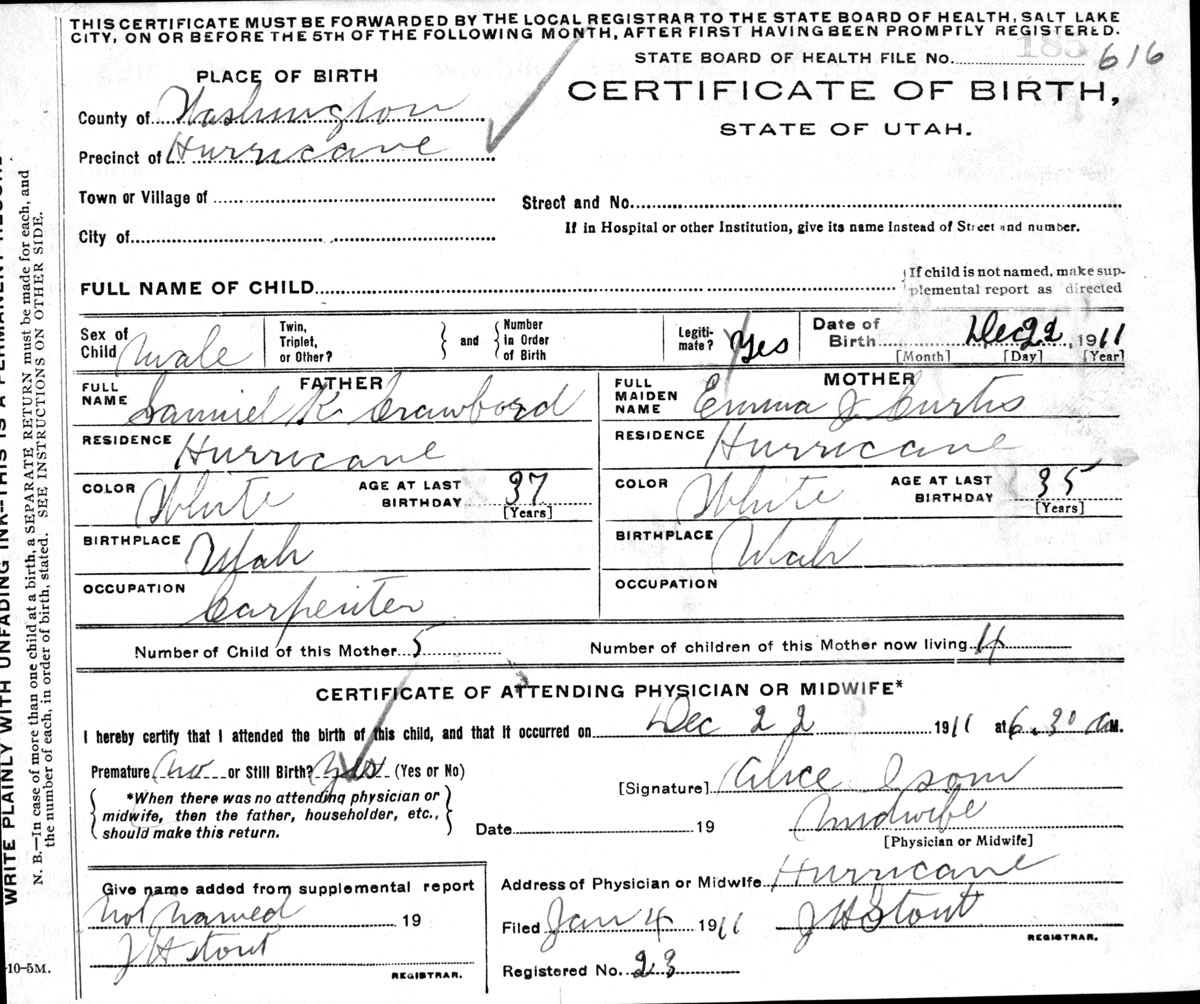 THIS CERTIFICATE MUST BE FORWARDED BY THE LOCAL REGISTRAR TO THE STATE BOARD OF HEALTH, SALT LAKE
CITY, ON OR BEFORE THE 5TH OF THE FOLLOWING MONTH, AFTER FIRST HAVING BEEN PROMPTLY REGISTERED.
STATE BOARD OF HEALTH FILE No. 616
PLACE OF BIRTH
CERTIFICATE OF BIRTH,
STATE OF UTAH.
County of Washington
Precinct of Hurricane
Town or Village of
Street and No.
City of
If in Hospital or other Institution, give its name Instead of Street and number.
FULL NAME OF CHILD
If child is not named, make sup-
plemental report as directed
Sex of Child Male
Twin, Triplet, or Other?
and
Number in Order of Birth
Legiti-mate? Yes
Date of Birth Dec 22, 1911
[Month] [Day] [Year]
FATHER
FULL NAME Samuel K Crawford
RESIDENCE Hurricane
COLOR White
AGE AT LAST BIRTHDAY 37
[Years]
BIRTHPLACE Utah
OCCUPATION Carpenter
MOTHER
FULL MAIDEN NAME Emma J Curtis
RESIDENCE Hurricane
COLOR White
AGE AT LAST BIRTHDAY 35
[Years]
BIRTHPLACE Utah
OCCUPATION
Number of Child of this Mother 5
Number of children of this Mother now living 4
CERTIFICATE OF ATTENDING PHYSICIAN OR MIDWIFE*
I hereby certify that I attended the birth of this child, and that it occurred on Dec 22 1911 at 6.30 a M.
Premature No or Still Birth? yes (Yes or No)
*When there was no attending physician or
midwife, then the father, householder, etc.,
should make this return.
[Signature] Alice Isom
Date 19
Midwife
[Physician or Midwife]
Give name added from supplemental report
not named 19
J H Stout
REGISTRAR.
Address of Physician or Midwife Hurricane
Filed Jan 4 1911 J H Stout
REGISTRAR.
Registered No. 23
10-5M.
WRITE PLAINLY WITH UNFADING INK—THIS IS A PERMANENT RECORD
N. B.—In case of more than one child at a birth, a SEPARATE RETURN must be made for each, and
the number of each, in order of birth, stated. SEE INSTRUCTIONS ON OTHER SIDE.